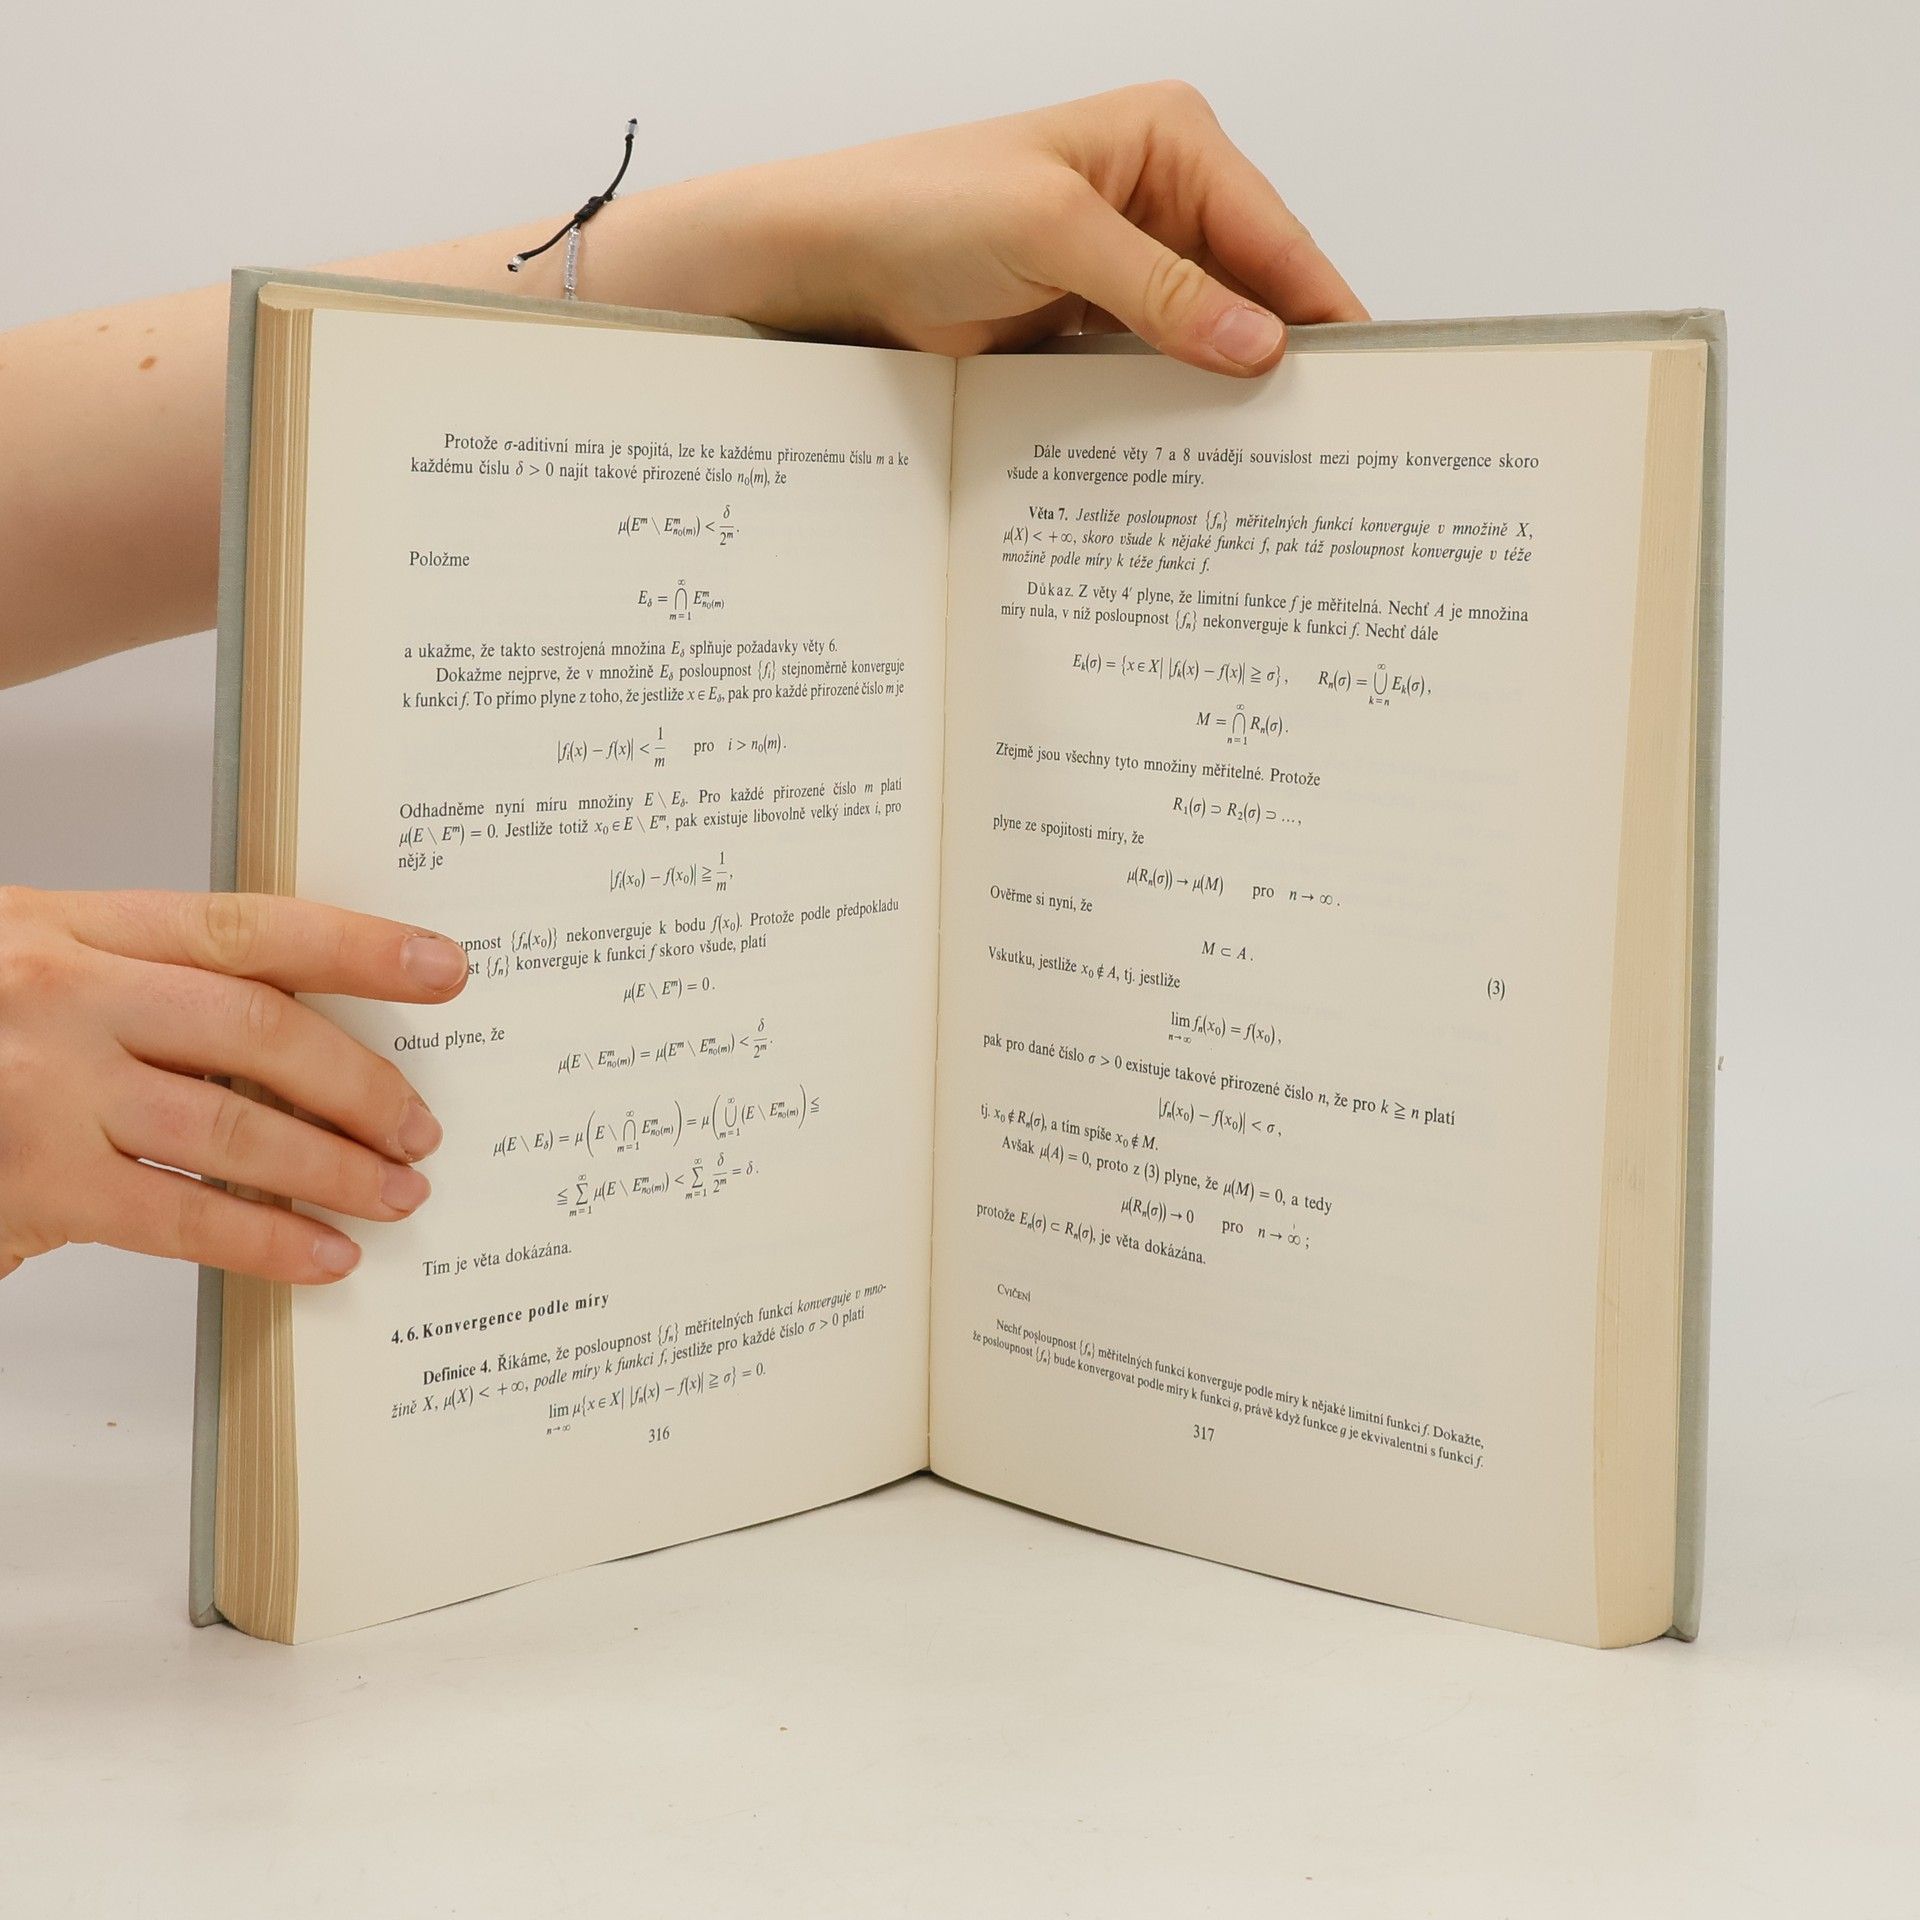 Protože σ-aditivní míra je spojitá, lze ke každému přirozenému číslu m a ke
každému číslu δ > 0 najít takové přirozené číslo n₀(m), že
μ(Eᵐ \ Eᵐₙ₀₍ₘ₎) < δ/2ᵐ.
Položme
E_δ = ⋂_{m=1}^{∞} Eᵐₙ₀₍ₘ₎
a ukažme, že takto sestrojená množina E_δ splňuje požadavky věty 6.
Dokažme nejprve, že v množině E_δ posloupnost {fᵢ} stejnoměrně konverguje
k funkci f. To přímo plyne z toho, že jestliže x ∈ E_δ, pak pro každé přirozené číslo m je
|fᵢ(x) − f(x)| < 1/m pro i > n₀(m).
Odhadněme nyní míru množiny E \ E_δ. Pro každé přirozené číslo m platí
μ(E \ Eᵐ) = 0. Jestliže totiž x₀ ∈ E \ Eᵐ, pak existuje libovolně velký index i, pro
nějž je
|fᵢ(x₀) − f(x₀)| ≧ 1/m,
upnost {fₙ(x₀)} nekonverguje k bodu f(x₀). Protože podle předpokladu
st {fₙ} konverguje k funkci f skoro všude, platí
μ(E \ Eᵐ) = 0.
Odtud plyne, že
μ(E \ Eᵐₙ₀₍ₘ₎) = μ(Eᵐ \ Eᵐₙ₀₍ₘ₎) < δ/2ᵐ.
μ(E \ E_δ) = μ(E \ ⋂_{m=1}^{∞} Eᵐₙ₀₍ₘ₎) = μ(⋃_{m=1}^{∞} (E \ Eᵐₙ₀₍ₘ₎)) ≦
≦ ∑_{m=1}^{∞} μ(E \ Eᵐₙ₀₍ₘ₎) < ∑_{m=1}^{∞} δ/2ᵐ = δ.
Tím je věta dokázána.
4. 6. Konvergence podle míry
Definice 4. Říkáme, že posloupnost {fₙ} měřitelných funkcí konverguje v mno-
žině X, μ(X) < +∞, podle míry k funkci f, jestliže pro každé číslo σ > 0 platí
lim_{n→∞} μ{x ∈ X| |fₙ(x) − f(x)| ≧ σ} = 0.
316
Dále uvedené věty 7 a 8 uvádějí souvislost mezi pojmy konvergence skoro
všude a konvergence podle míry.
Věta 7. Jestliže posloupnost {fₙ} měřitelných funkcí konverguje v množině X,
μ(X) < +∞, skoro všude k nějaké funkci f, pak táž posloupnost konverguje v téže
množině podle míry k téže funkci f.
Důkaz. Z věty 4′ plyne, že limitní funkce f je měřitelná. Nechť A je množina
míry nula, v níž posloupnost {fₙ} nekonverguje k funkci f. Nechť dále
Eₖ(σ) = {x ∈ X| |fₖ(x) − f(x)| ≧ σ}, Rₙ(σ) = ⋃_{k=n}^{∞} Eₖ(σ),
M = ⋂_{n=1}^{∞} Rₙ(σ).
Zřejmě jsou všechny tyto množiny měřitelné. Protože
R₁(σ) ⊃ R₂(σ) ⊃ ...,
plyne ze spojitosti míry, že
μ(Rₙ(σ)) → μ(M) pro n → ∞.
Ověřme si nyní, že
M ⊂ A. (3)
Vskutku, jestliže x₀ ∉ A, tj. jestliže
lim_{n→∞} fₙ(x₀) = f(x₀),
pak pro dané číslo σ > 0 existuje takové přirozené číslo n, že pro k ≧ n platí
|fₙ(x₀) − f(x₀)| < σ,
tj. x₀ ∉ Rₙ(σ), a tím spíše x₀ ∉ M.
Avšak μ(A) = 0, proto z (3) plyne, že μ(M) = 0, a tedy
μ(Rₙ(σ)) → 0 pro n → ∞;
protože Eₙ(σ) ⊂ Rₙ(σ), je věta dokázána.
CVIČENÍ
Nechť posloupnost {fₙ} měřitelných funkcí konverguje podle míry k nějaké limitní funkci f. Dokažte,
že posloupnost {fₙ} bude konvergovat podle míry k funkci g, právě když funkce g je ekvivalentní s funkcí f.
317